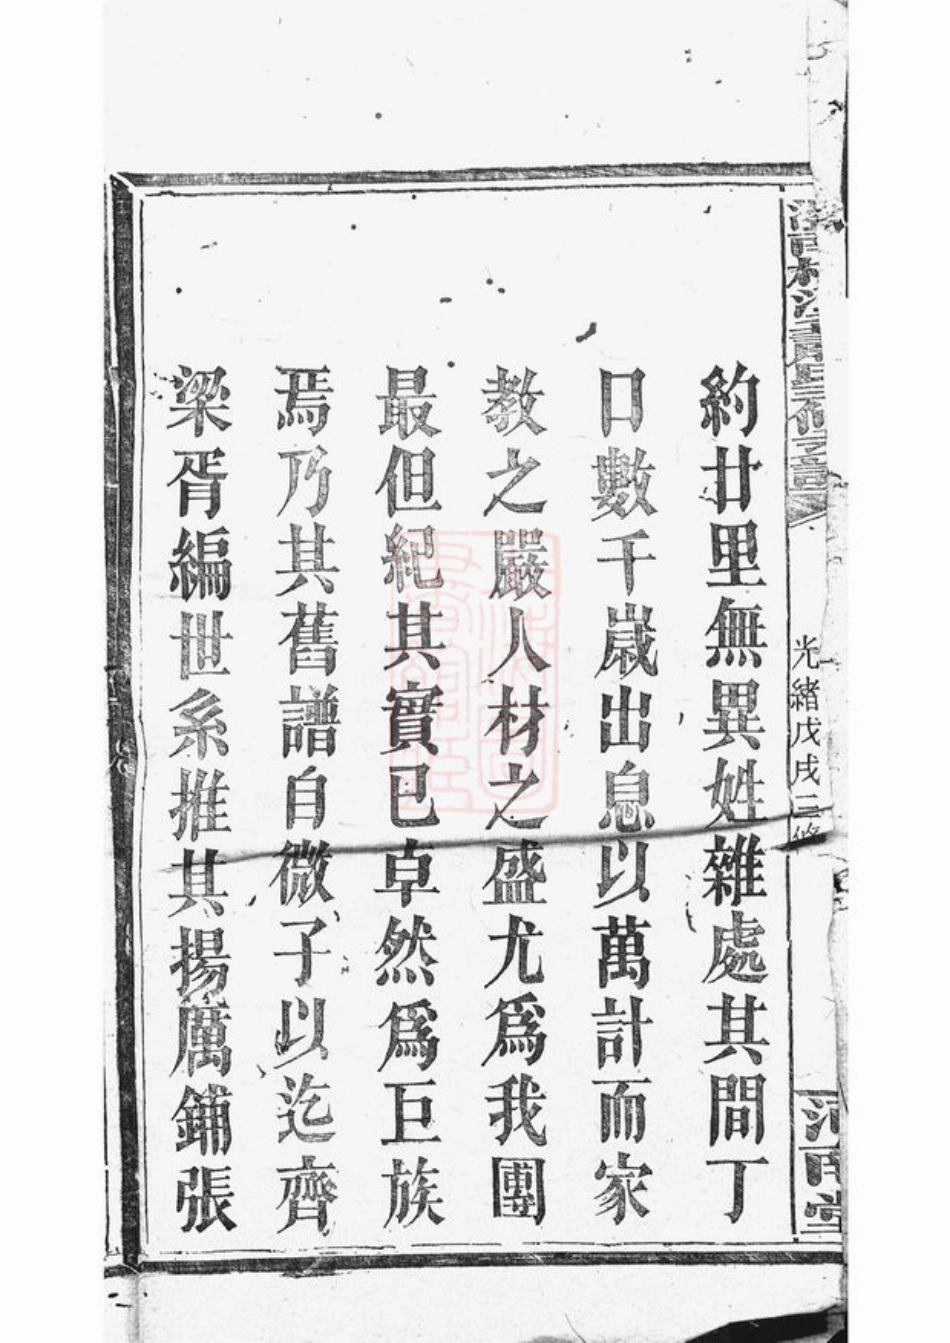 光緒戊戌三修
約廿里無異姓雜處其間丁
口數千歲出息以萬計而家
教之嚴人材之盛尤爲我團
最但紀其實已卓然爲巨族
焉乃其舊譜自微子以迄齊
梁胥編世系推其揚厲鋪張